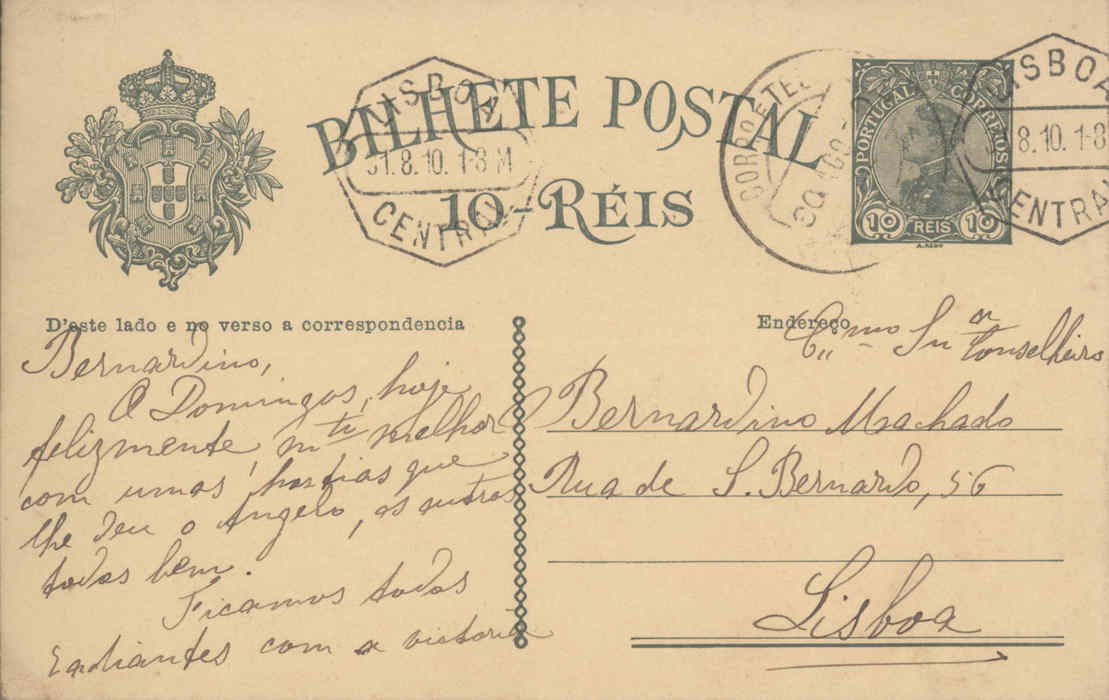 BILHETE POSTAL
10-RÉIS
LISBOA
31.8.10. 1-8 M
CENTRAL
PORTUGAL CORREIOS
10 REIS 10
LISBOA
8.10. 1-8
CENTRAL
D'este lado e no verso a correspondencia
Bernardino,
O Domingos, hoje
felizmente, mto melhor
com umas hostias que
lhe deu o Angelo, os outros
todos bem.
Ficamos todos
radiantes com a victoria
Endereço
Exmo Snr Conselheiro
Bernardino Machado
Rua de S. Bernardo, 56
Lisboa